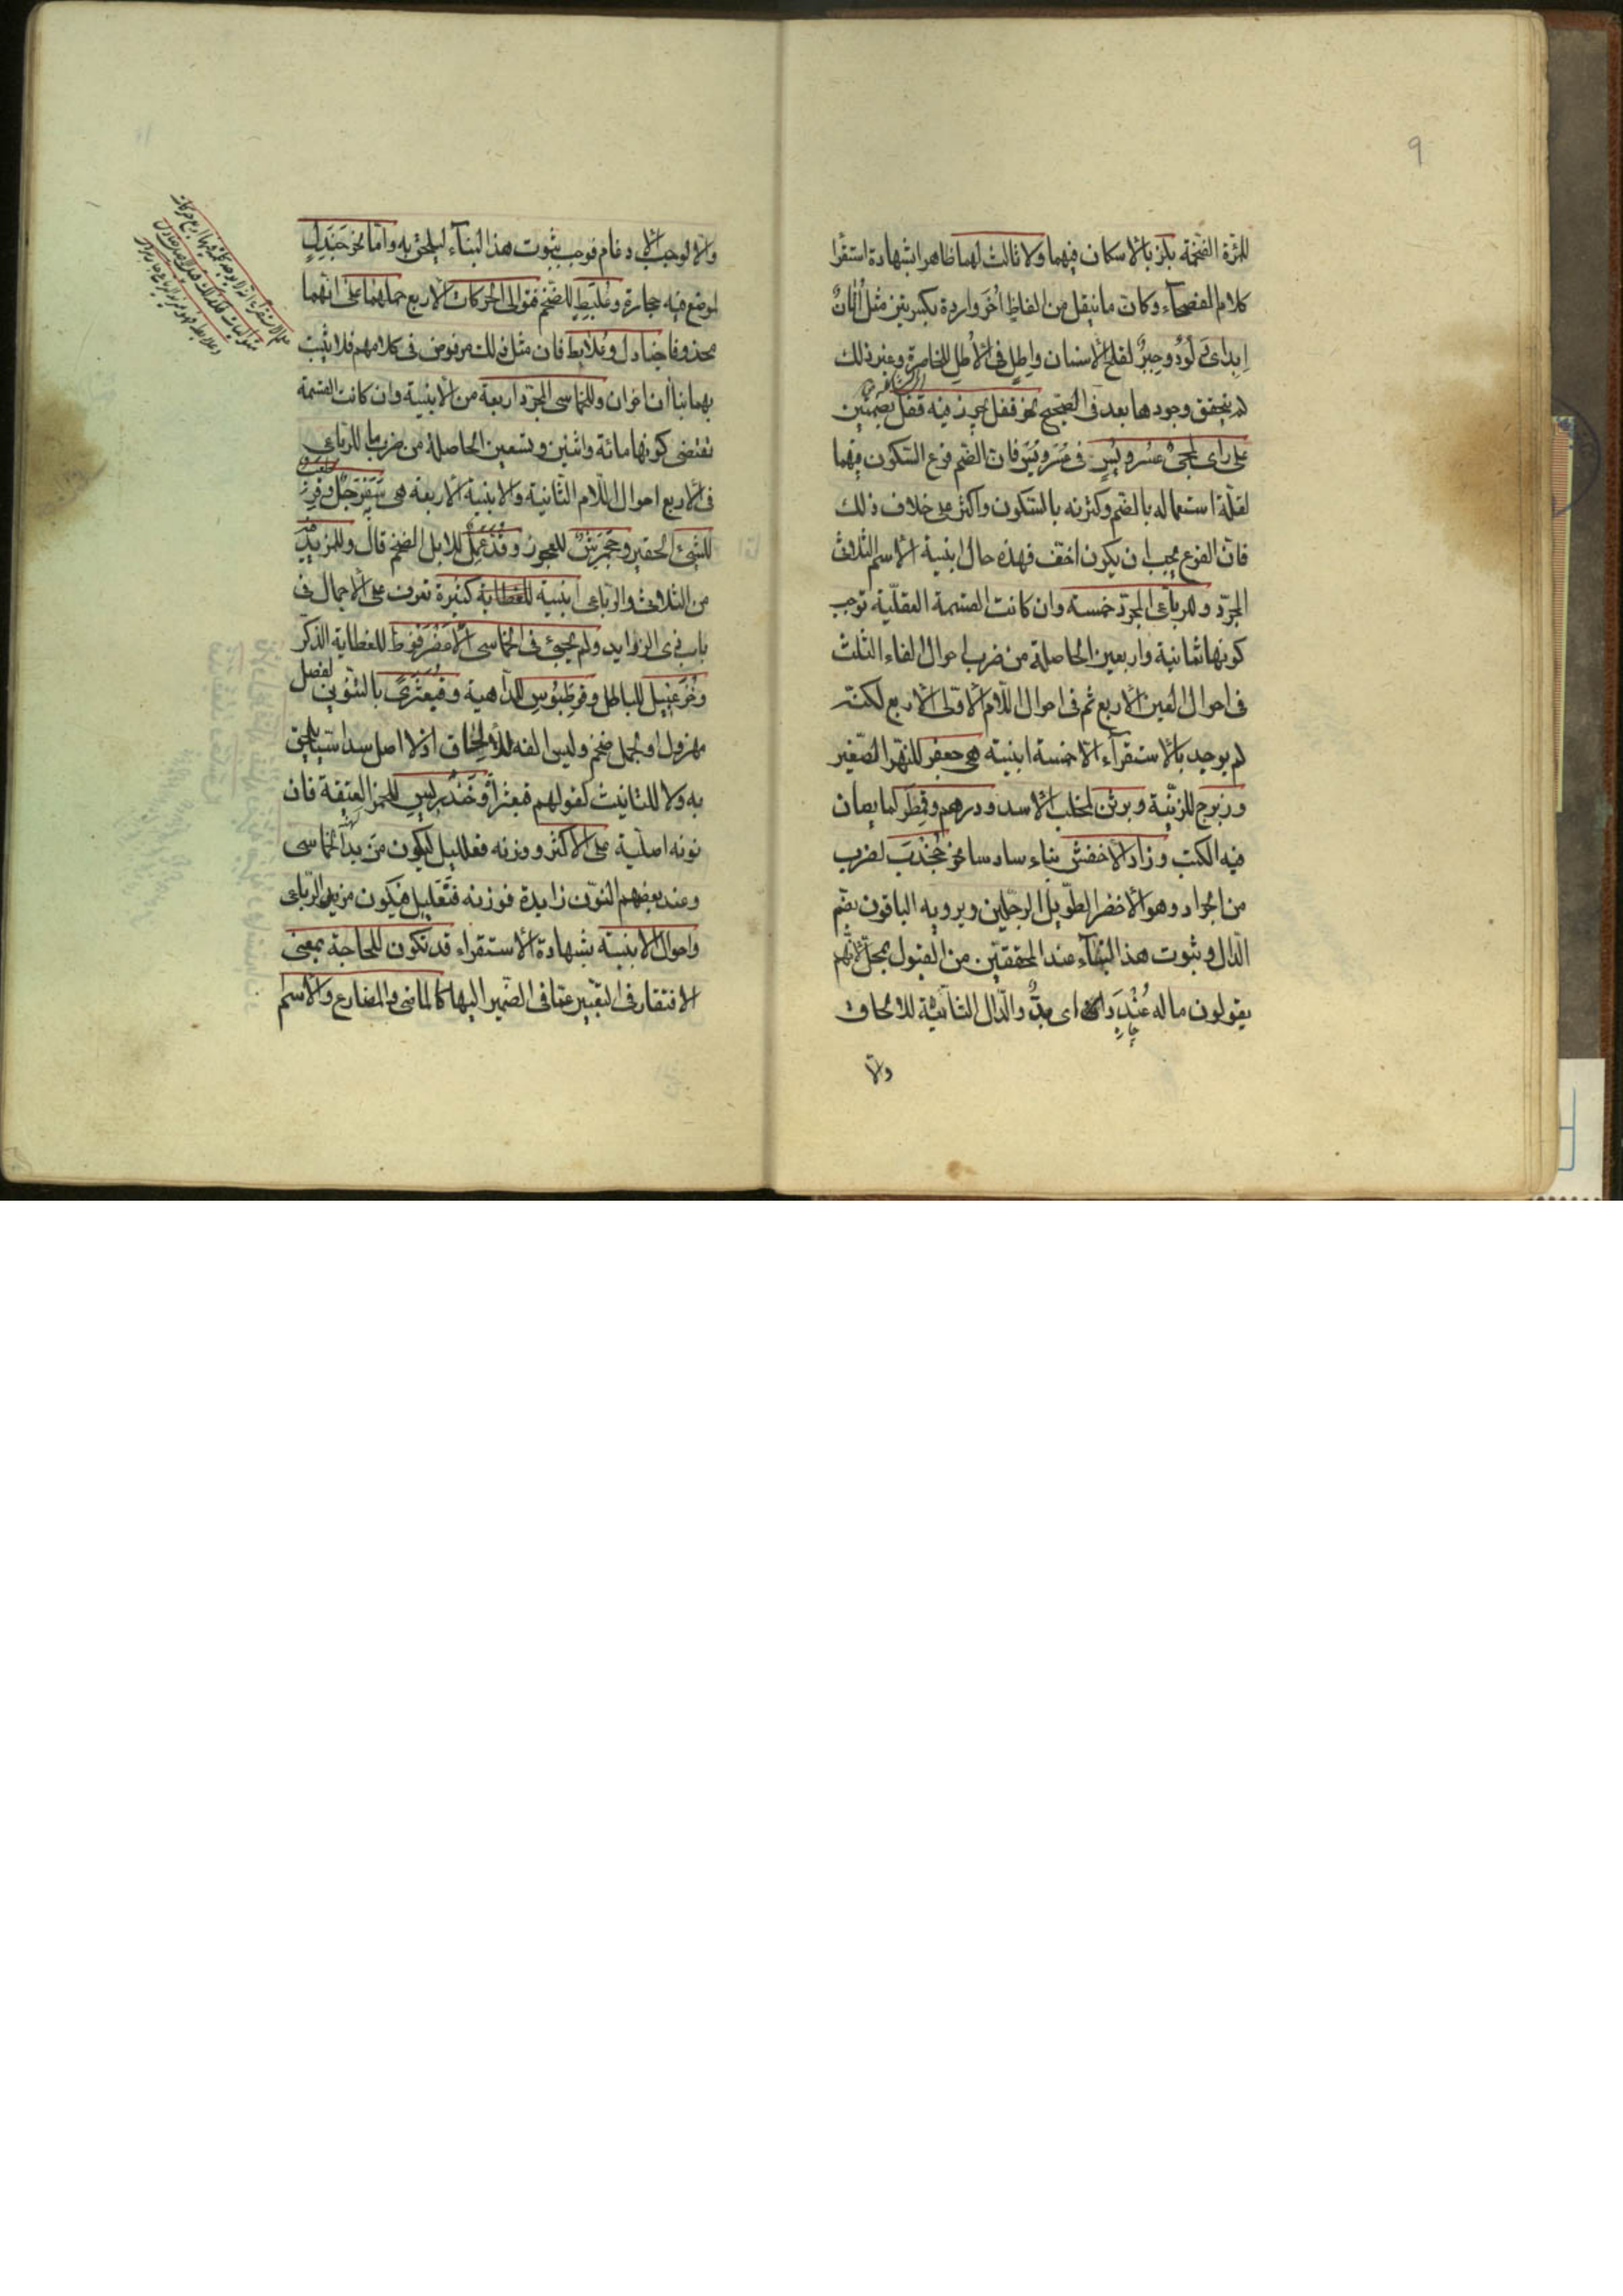 9
للمرّة الضخمة بلز بالاسكان فيهما ولا ثالث لهما ظاهرا بشهادة استقرا
كلام الفصحاء وكان ما ينقل من الفاظ اُخَر واردة بكسرتين مثل اتانٌ
اِبِدٌ اى وَلُودٌ وحِبِرٌ لقلح الاسنان واِطِلٍ فى الاْطِل للخاصرة وغير ذلك
لم يتحقق وجودها بعد فى الصّحيح نحو قفل يجوز فيه قفل بضمّتين
على راى لمجئ عُسُر ويُسُرٍ فى عُسْر ويُسْر فان الضم فرع السّكون فيهما
لقلّة استعماله بالضم وكثرته بالسّكون واكثر على خلاف ذلك
فان الفرع يجب ان يكون اخف فهذه حال ابنية الاسم الثلاثى
المجرّد وللرباعى المجرّد خمسة وان كانت القسمة العقليّة توجب
كونها ثمانية واربعين الحاصلة من ضرب احوال الفاء الثلث
فى احوال العين الاربع ثم فى احوال اللّام الاولى الاربع لكنّه
لم يوجد بالاستقرآء الا خمسة ابنية هى جعفر للنّهر الصّغير
وزبرج للزّينة وبرثن لمخلب الاسد ودرهم وقِمَطْر لما يصان
فيه الكتب وزاد الاخفش بناء سادسا نحو جُخْدَب لضرب
من الجراد وهو الاخضر الطّويل الرجلين ويرويه الباقون بضّم
الدّال وثبوت هذا البناء عند المحققين من القبول بمحل لانّهم
يقولون ما له عُنْدَدٌ اى بدٌّ والدّال الثانية للالحاق
والّا
والّا لوجب الادغام فوجب ثبوت هذا البناء ليلحق به وامّا نحو جَنَدِلٍ
لموضع فيه حجارة وعُلَبِطٍ للضّخم فتوالى الحركات الاربع حملهما على انهما
محذوفا جنادل وعُلابط فان مثل ذلك مرفوض فى كلامهم فلا يثبت
بهما بناأن اخران وللخماسى المجرّد اربعة من الابنية وان كانت القسمة
تقتضى كونها مائة واثنين وتسعين الحاصلة من ضرب ما للرباعى
فى الاربع احوال اللّام الثّانية والابنية الاربعة هى سَفَرْجَلٌ وقِرْطَعْبٌ
للشّئ الحقير وجَحْمَرِشٌ للعجوز وقُذَعْمِلٌ للابل الضخم قال وللمزيد فيه
من الثلاثى والرّباعى ابنية كثيرة تعرف على الاجمال فى
باب ذى الزوايد ولم يجئ فى الخماسى الّا عَضْرَفُوط للعظاية الذكر
وخُزَعْبِيل للباطل وقِرْطَبُوسٍ للدّاهية وقَبَعْثَرىً بالتنوين لفصل
مهزول او لجمل ضخم وليس الفه للالحاق اذ لا اصل سداسيّا يلحق
به ولا للتانيث لقولهم قبعثراة وخَنْدَرِيسٍ للخمر العتيقة فان
نونه اصلية على الاكثر ووزنه فعلليل ليكون من مزيد الخماسى
وعند بعضهم النّون زايدة فوزنه فنعليل فيكون من مزيد الرّباعى
واحوال الابنية بشهادة الاستقراء قد تكون للحاجة بمعنى
الافتقار فى التعبير عمّا فى الضّمير اليها كالماضى والمضارع والاسم